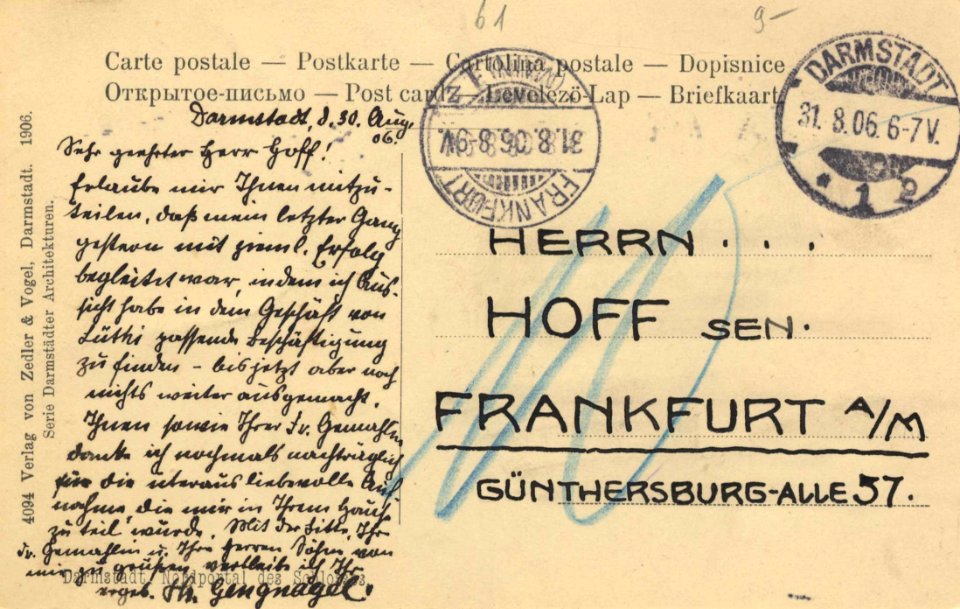 61
9-
Carte postale — Postkarte — Cartolina postale — Dopisnice
Открытое-письмо — Post card — Levelező-Lap — Briefkaart
DARMSTADT
31.8.06.6-7V.
* 1 2
FRANKFURT
31.8.06.8-9V.
4094 Verlag von Zedler & Vogel, Darmstadt. 1906.
Serie Darmstädter Architekturen.
Darmstadt, d. 30. Aug.
06.
Sehr geehrter Herr Hoff!
Erlaube mir Ihnen mitzu-
teilen, daß mein letzter Gang
gestern mit zieml. Erfolg
begleitet war, indem ich Aus-
sicht habe in dem Geschäft von
Lüthi passende Beschäftigung
zu finden - bis jetzt aber noch
nichts weiter ausgemacht.
Ihnen sowie Ihrer Fr. Gemahlin
danke ich nochmals nachträglich
für die überaus liebevolle Auf-
nahme die mir in Ihrem Hause
zu teil wurde. Mit der Bitte, Ihr
Fr. Gemahlin u. Ihre Herren Söhne von
mir zu grüßen verbleibe ich Ihr
ergeb. Th. Gengnagel.
Darmstadt, Nordportal des Schlosses
HERRN . . .
HOFF SEN.
FRANKFURT A/M
GÜNTHERSBURG-ALLE 57.